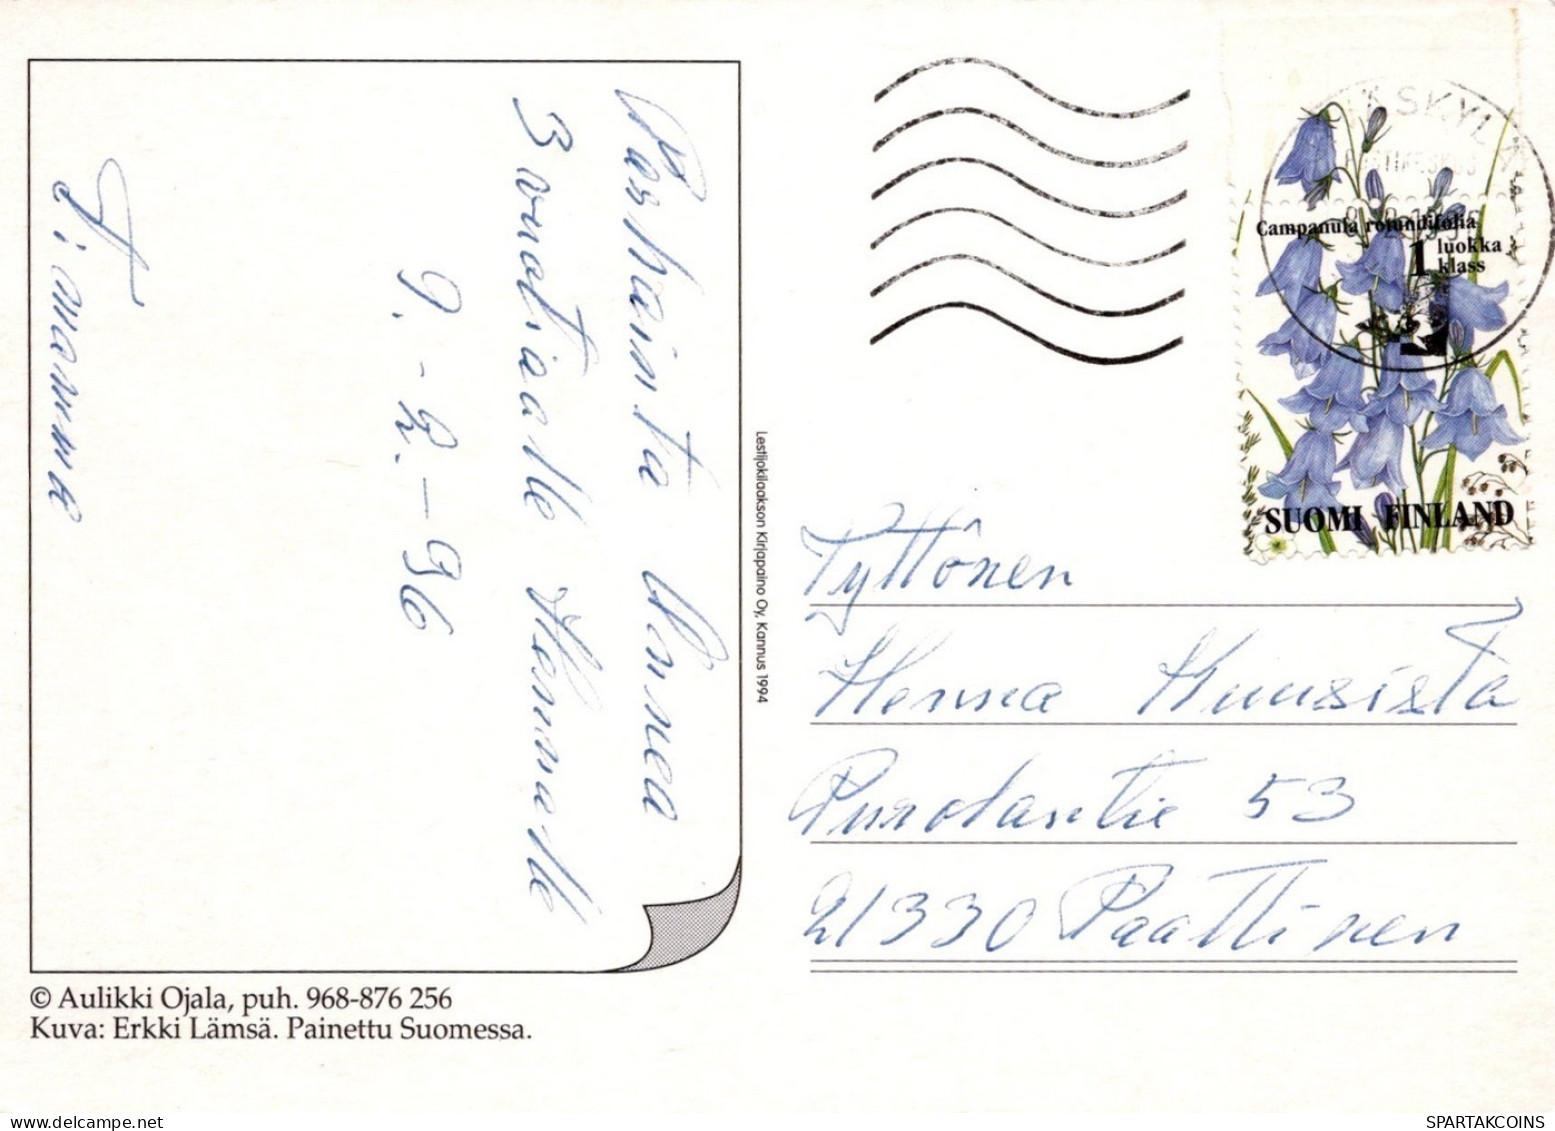 Parhainta Onnea
3 vuotiaalle Hennalle
9.-2.-96
Timamma
Lestijokilaakson Kirjapaino Oy, Kannus 1994
© Aulikki Ojala, puh. 968-876 256
Kuva: Erkki Lämsä. Painettu Suomessa.
Campanula rotundifolia
1 luokka
klass
SUOMI FINLAND
Tyttönen
Henna Kuusista
Purolantie 53
21330 Paattinen
SPARTAKCOINS
hippostcard.com